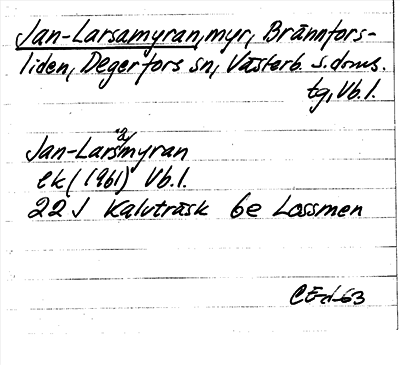 Jan-Larsamyran, myr, Brännfors-
liden, Degerfors sn, Västerb. s. doms.
tg, Vb. l.
Jan-Larsamyran
ek (1961) Vb. l.
22 J Kalvträsk 6e Lossmen
CEd-63